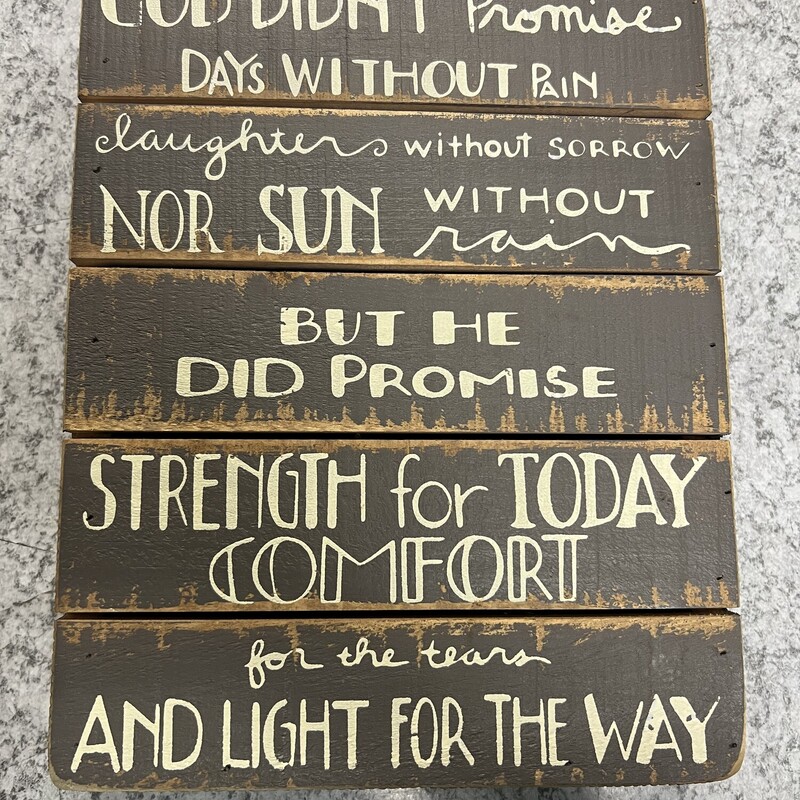 GOD DIDN'T Promise
DAYS WITHOUT PAIN
laughter without SORROW
NOR SUN WITHOUT rain
BUT HE
DID PROMISE
STRENGTH for TODAY
COMFORT
for the tears
AND LIGHT FOR THE WAY